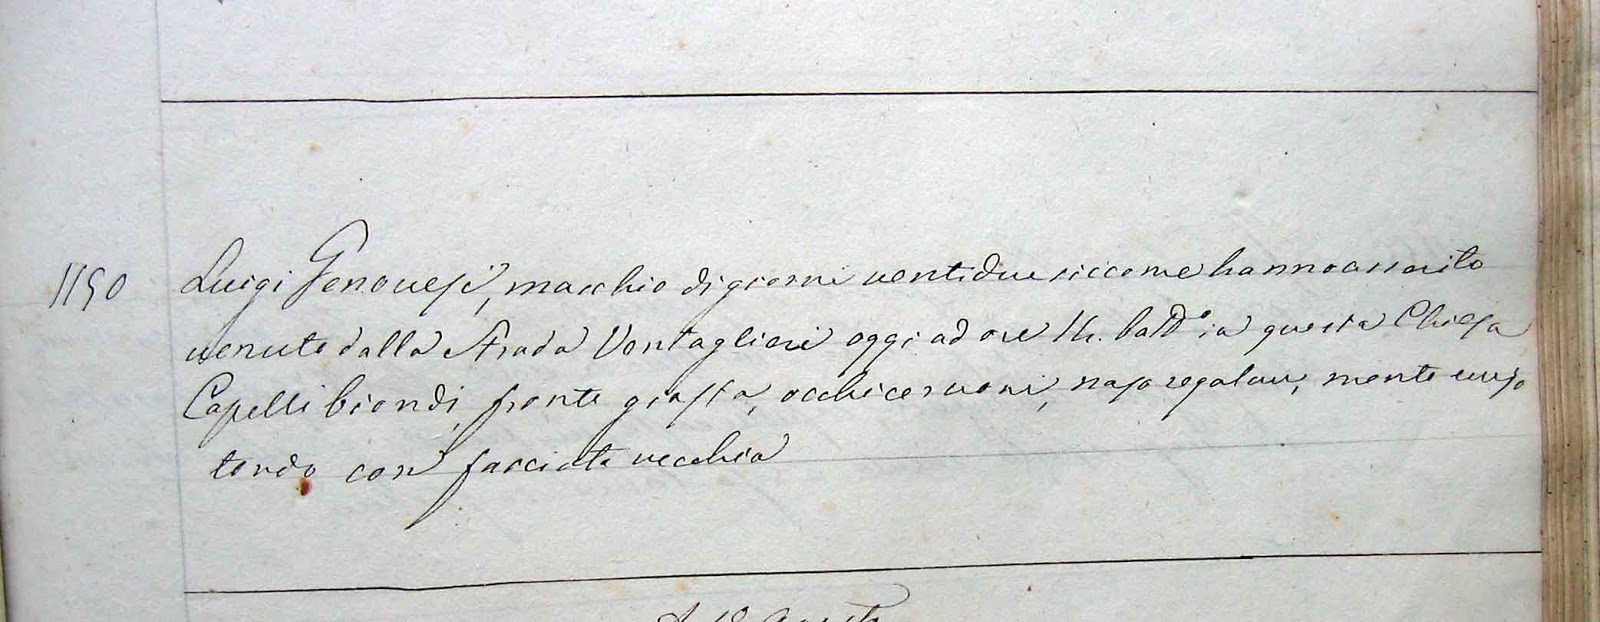 1150
Luigi Genovesi, maschio di giorni ventidue siccome hanno asserito
venuto dalla Strada Ventaglieri oggi ad ore 14. batt.º in questa Chiesa
Capelli biondi, fronte giusta, occhi cervoni, naso regolare, mento e viso
tondo con fasciata vecchia
A